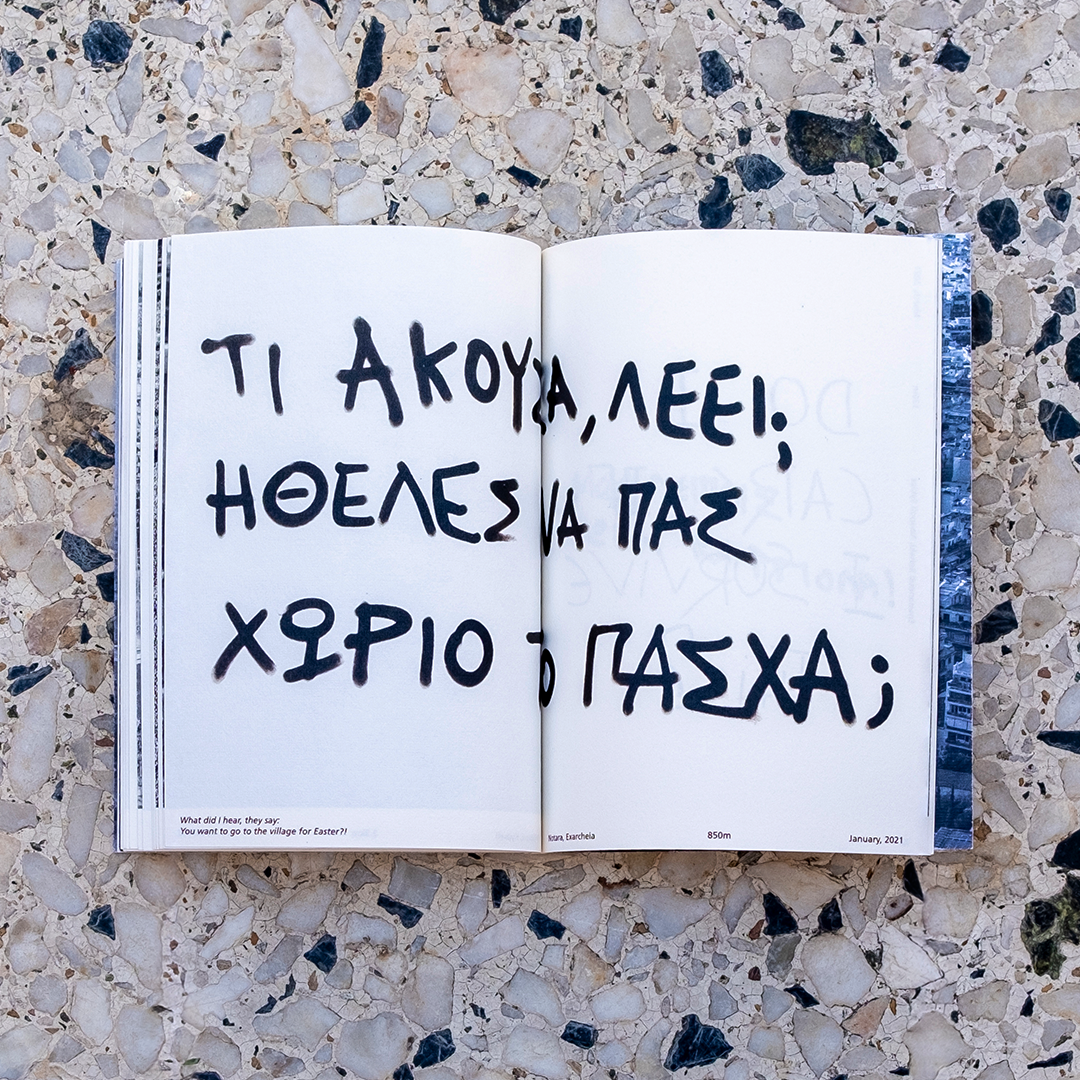 ΤΙ ΑΚΟΥΣΑ, ΛΕΕΙ;
ΗΘΕΛΕΣ ΝΑ ΠΑΣ
ΧΩΡΙΟ ΤΟ ΠΑΣΧΑ;
What did I hear, they say:
You want to go to the village for Easter?!
Notara, Exarcheia 850m January, 2021